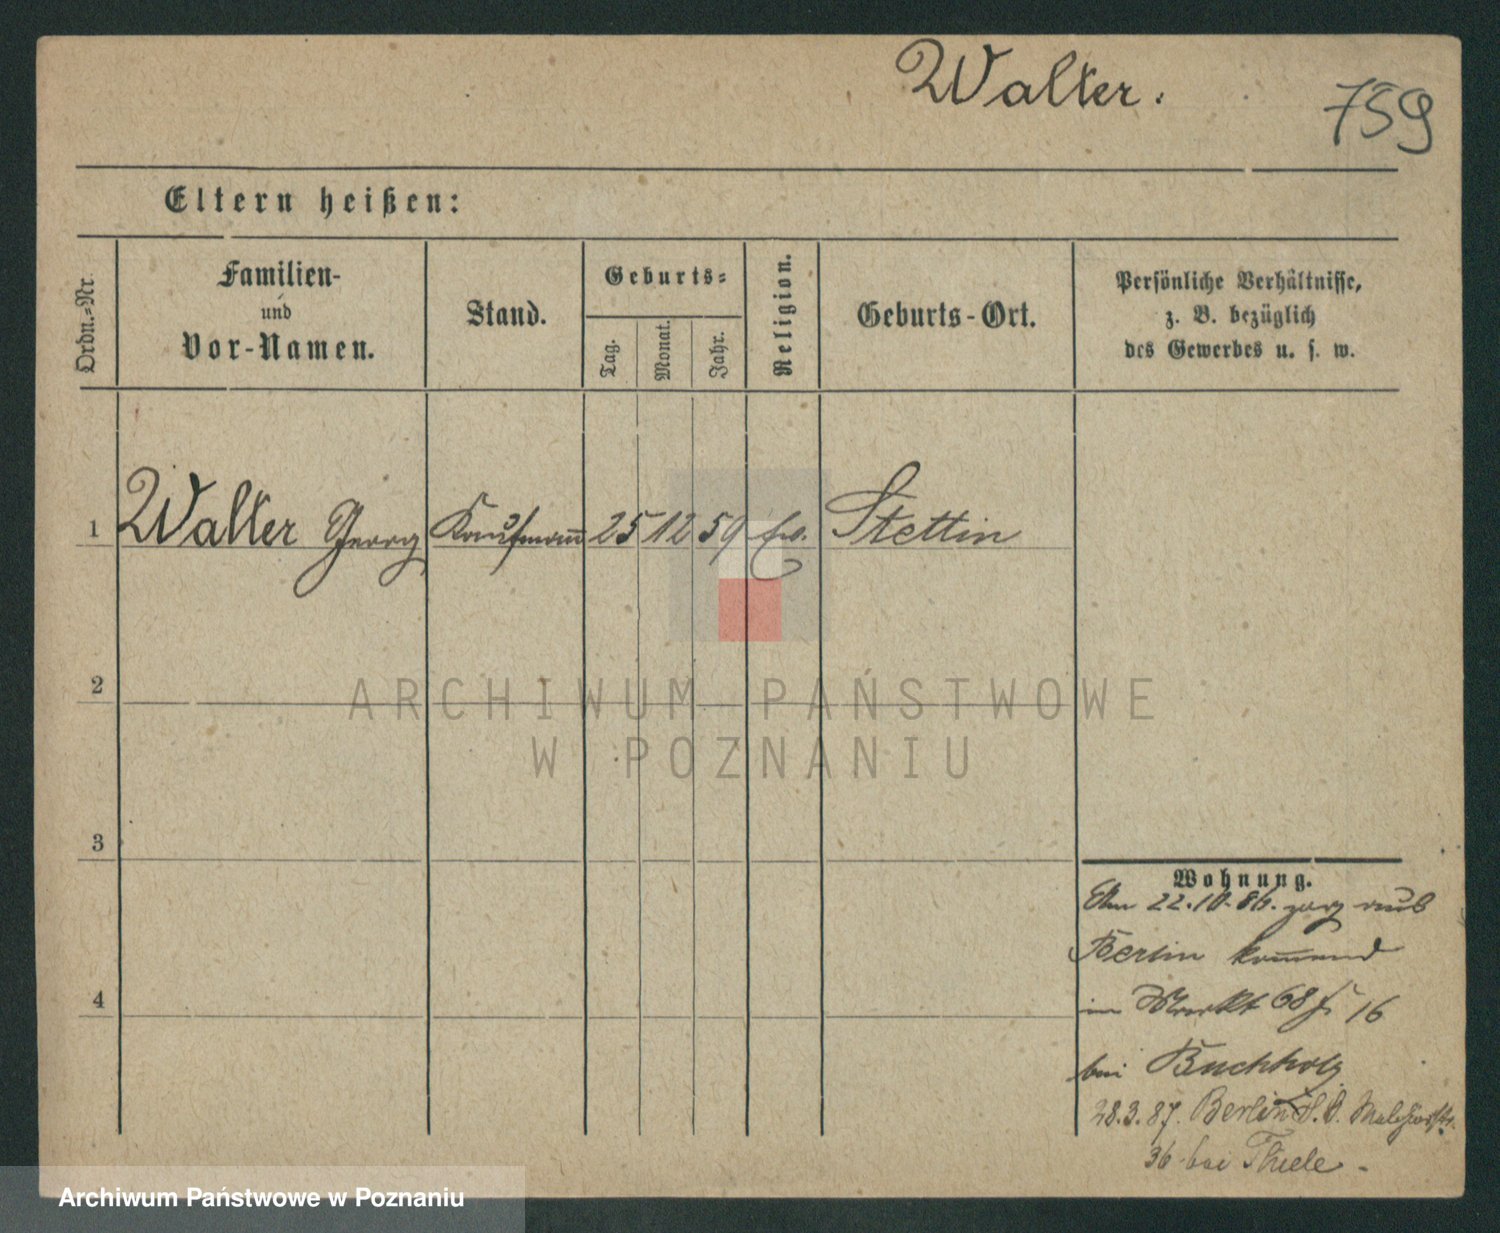 Walter.
759
Eltern heißen:
Ordn.-Nr.
Familien-
und
Vor-Namen.
Stand.
Geburts-
Tag.
Monat.
Jahr.
Religion.
Geburts-Ort.
Persönliche Verhältnisse,
z. B. bezüglich
des Gewerbes u. s. w.
1 Walter Georg Kaufmann 25 12 59 ev. Stettin
2
3
4
ARCHIWUM PAŃSTWOWE
W POZNANIU
Wohnung.
Am 22.10.86. zog aus
Berlin kommend
im Markt 68 16
bei Buchholz
28.3.87. Berlin
36 bei Thiele
Archiwum Państwowe w Poznaniu